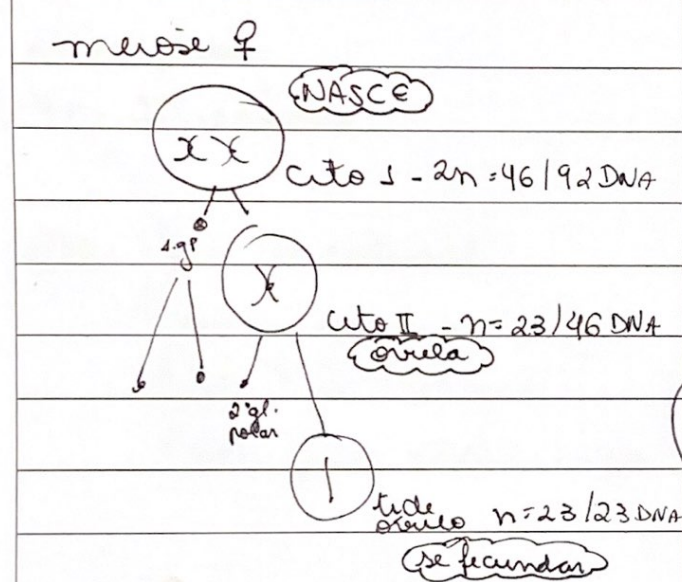 meiose ♀
NASCE
cito I - 2n = 46/92 DNA
1.gp
cito II - n = 23/46 DNA
ovula
2º gl.
polar
óvulo n = 23/23 DNA
se fecundar